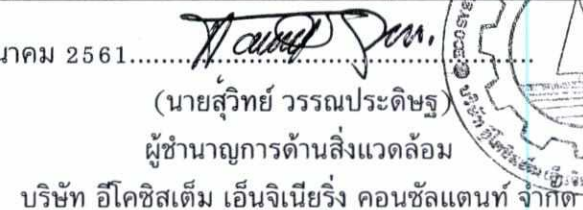 นาคม 2561
(นายสุวิทย์ วรรณประดิษฐ)
ผู้ชำนาญการด้านสิ่งแวดล้อม
บริษัท อีโคซิสเต็ม เอ็นจิเนียริ่ง คอนซัลแตนท์ จำกัด